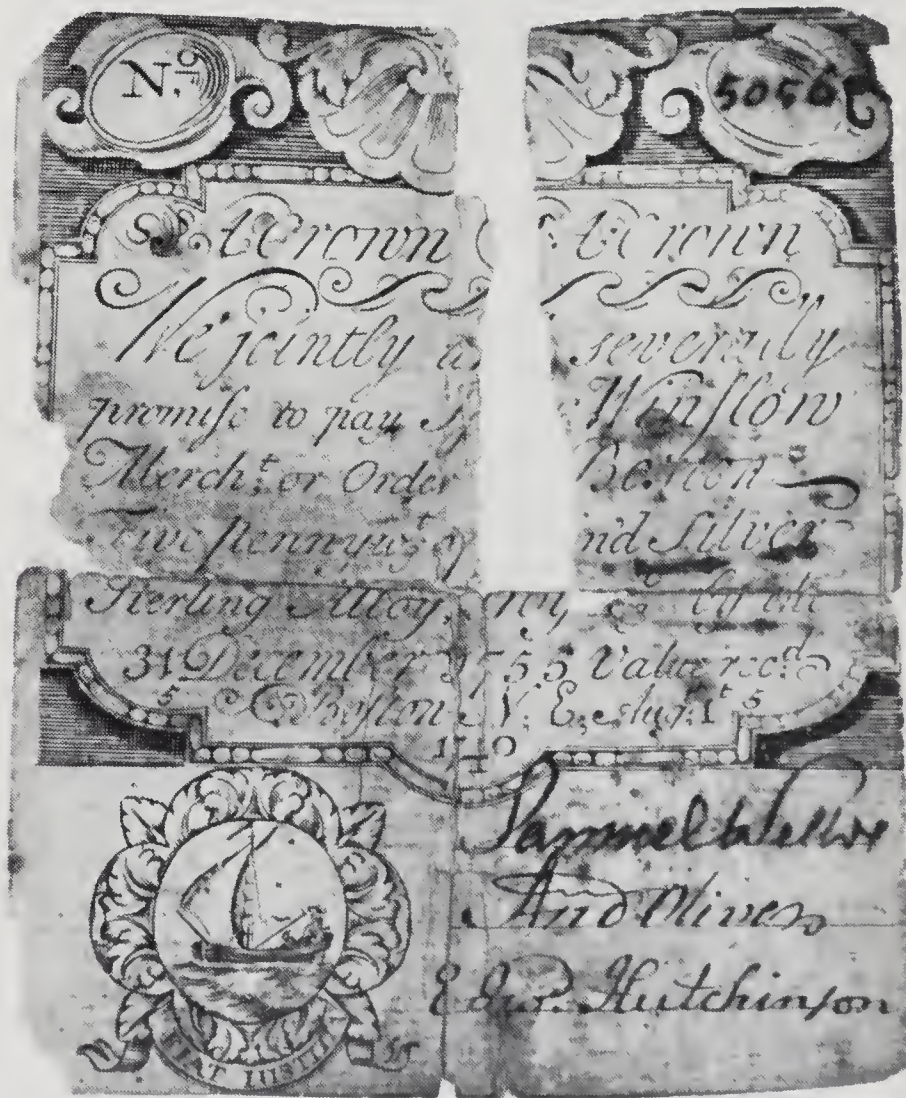 No. 5056
Crown Crown
We jointly severally
promise to pay Winslow
Mercht. or Order Boston
pennywt. Silver
Sterling Alloy Troy by the
31 December 1755 Value recd.
5 Boston N. E. Augt. 1st 5
1 0
Samuel Welles
And Oliver
Edwd. Hutchinson
FIAT IUSTITI